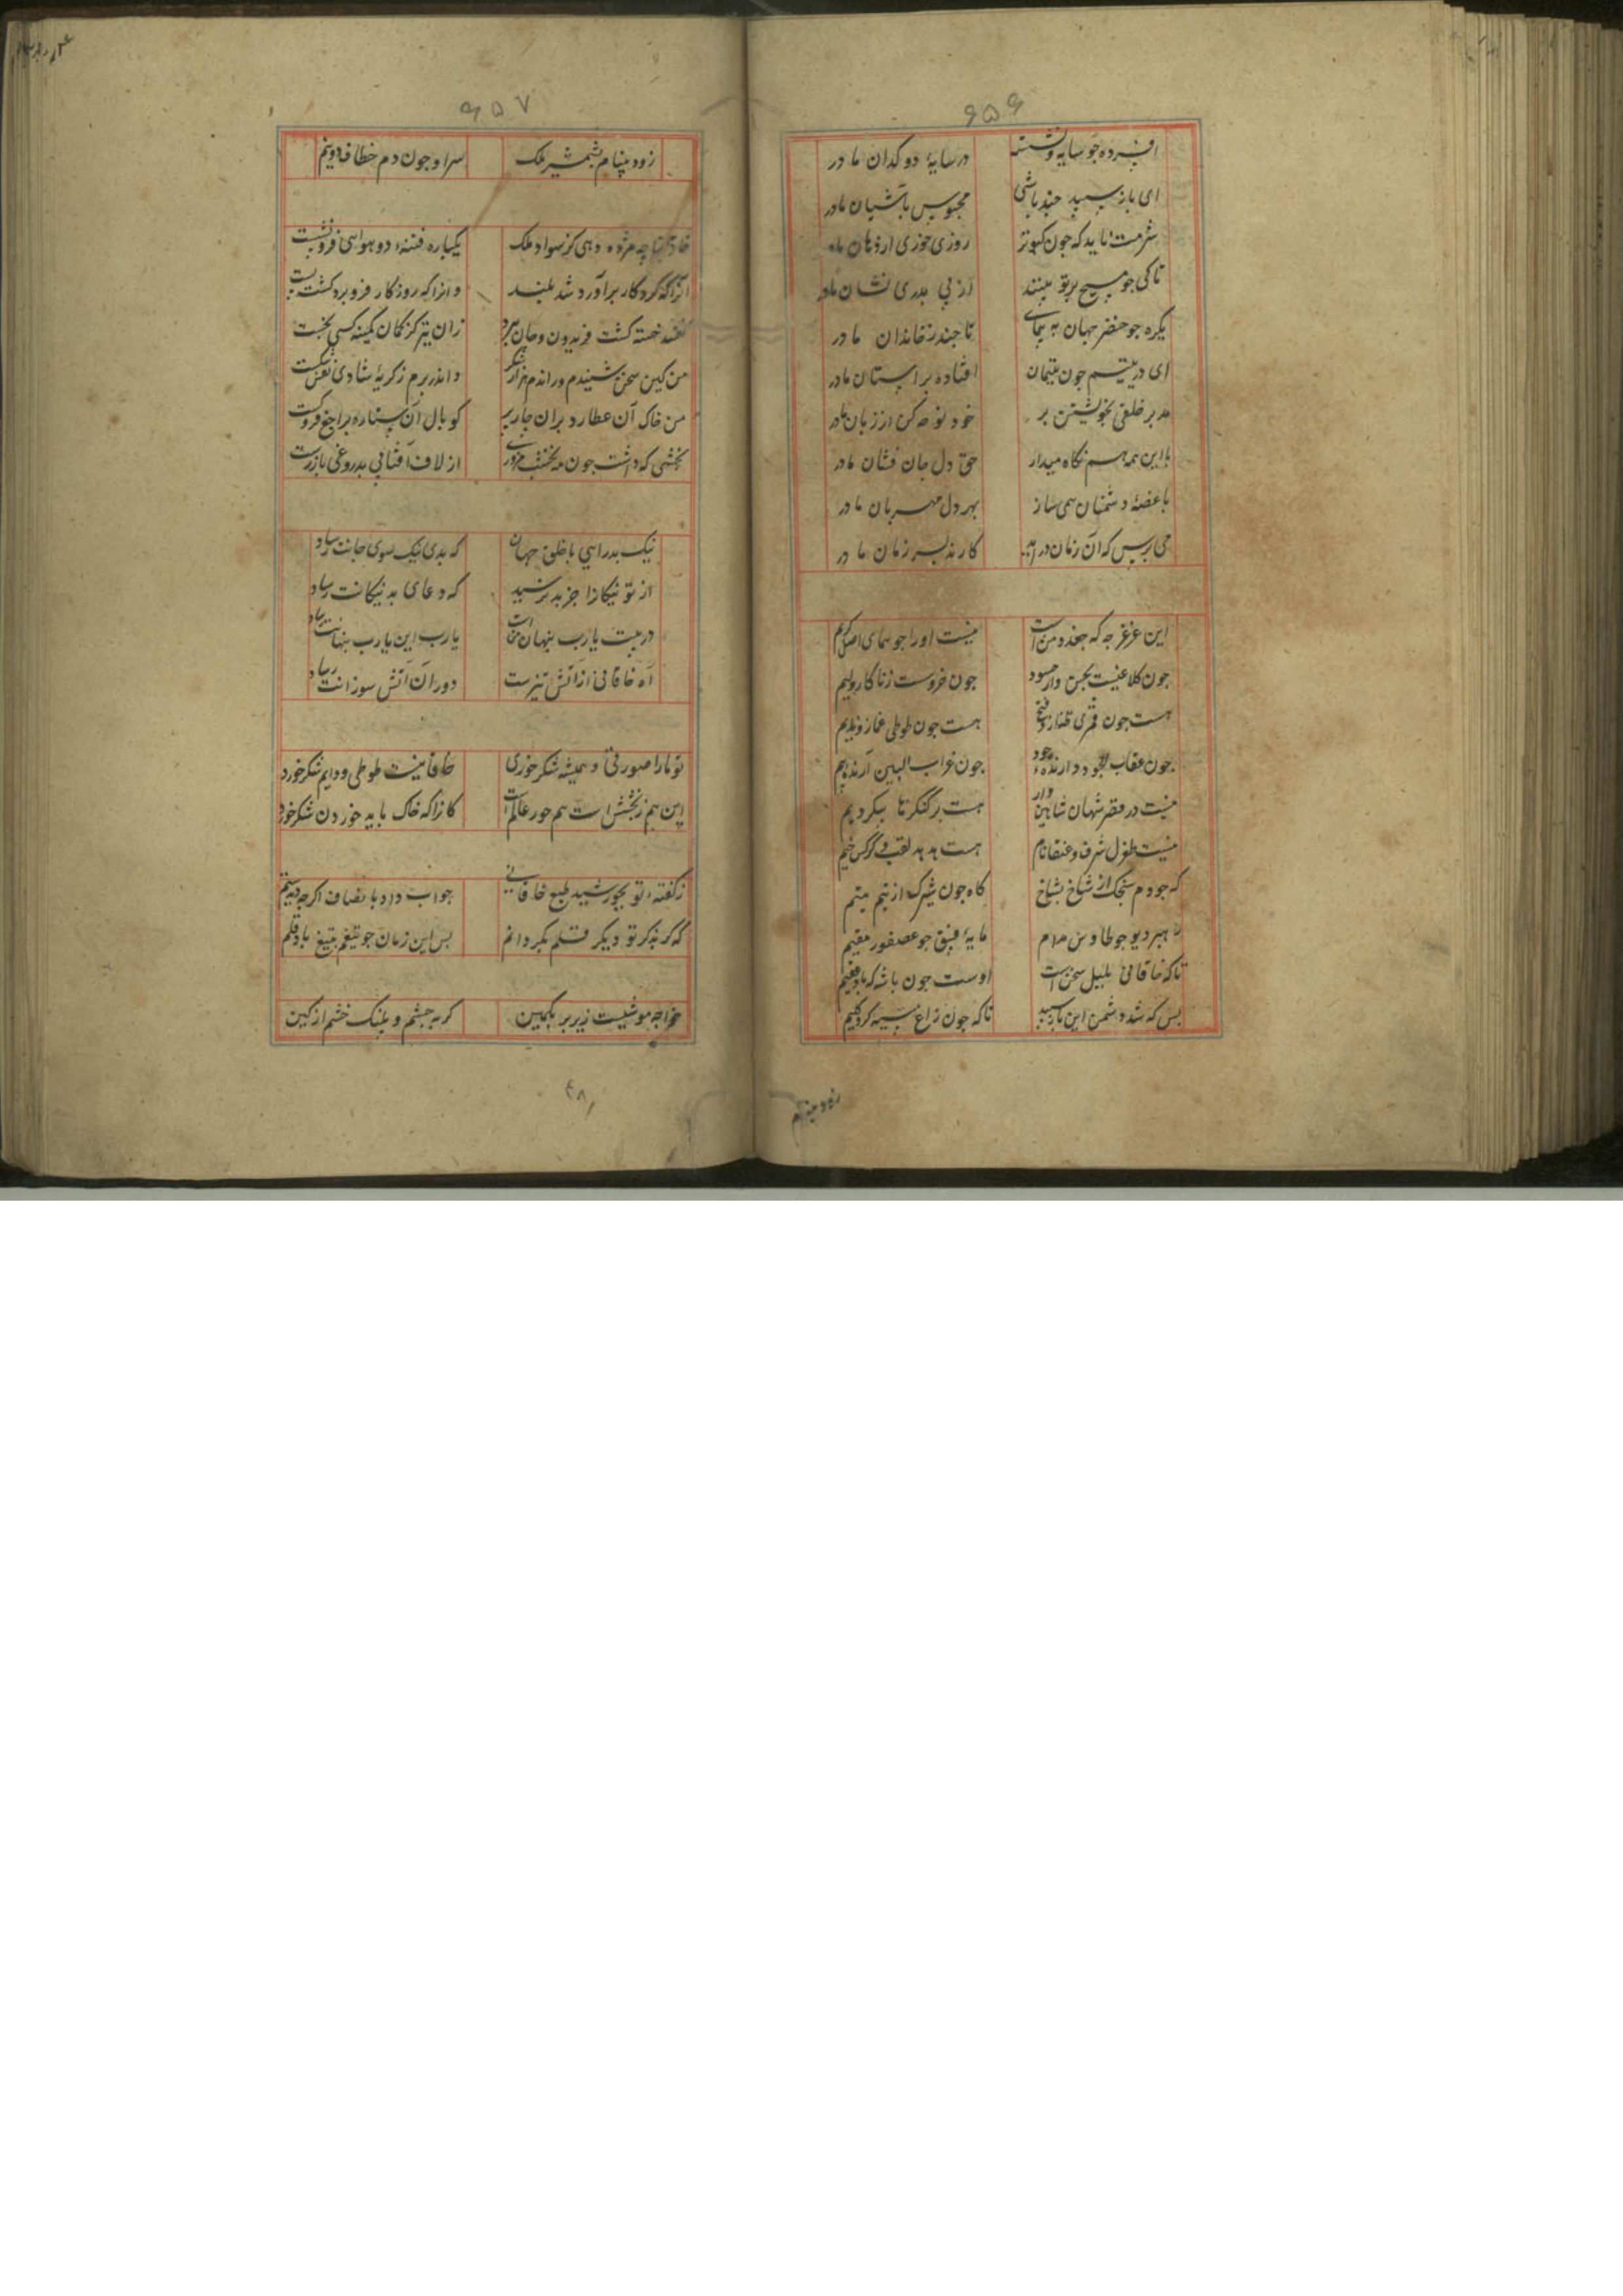 ۶۵۶
افسرده چو سایه و نشسته در سایهٔ دوکدان مادر
ای باز سپید چند باشی محبوس بآشیان مادر
شرمت ناید که چون کبوتر روزی خوری از دهان مادر
تا کی چو مسیح بر تو بینند از بی پدری نشان مادر
یکره چو خضر جهان بپیمای تا چند ز خاندان مادر
ای در یتیم چون یتیمان افتاده بر آستان مادر
مدبر خلفی بخویشتن بر خود نوحه کن از زبان مادر
با این همه هم نگاه میدار حق دل جان فشان مادر
با غصهٔ دشمنان همی ساز بهر دل مهربان مادر
می ترس که آن زمان درآید کارند بسر زمان مادر
این غرغرجه که جغد دمن است نیست او را چو همای اصل کریم
چون کلاغیست نجس وار حسود چون خروسست زناکار و لئیم
هست چون قمری طناز وقیح هست چون طوطی غماز و ندیم
چون عقاب الجود دارنده جود چون غراب البین آرنده بیم
نیست در قصر شهان شاهین وار هست بر کنگرها
نیست طغرل شرف و عنقا نام هست هدهد لقب و کرکس خیم
که چو دم سنجک از شاخ بشاخ گاه چون شپرک از تیم متیم
رهبر دیو چو طاوس مدام مایهٔ فسق چو عصفور مقیم
تا که خاقانی بلبل سخن است اوست چون باشه که با
بس که شد دشمن این باز سپید تا که چون زاغ سیه کرد گلیم
زود بینم
۶۵۷
زود بینام بشمشیر ملک سر او چون دم خطاف دو نیم
خاقانیا چه مژده دهی کز سواد ملک یکباره فتنهٔ دو هوایی فرو نشست
آنرا که کردگار برآورد شد بلند وانرا که روزگار فرو برد گشت پست
گفتند خسته گشت فریدون و جان سپرد زان تیر کز کمان کمینه کسی بجست
من کین سخن شنیدم و راندم هزار شکر و اندر برم ز گریهٔ شادی نفس شکست
من خاک آن عطارد پران چارپر کو بال آن ستارهٔ راجع فرو شکست
بخشی که داشت چون مه نخشب مزوری از لاف آفتابی بدروغی باز رست
نیک بد رایی با خلق جهان که بدی نیک سوی جانت رساد
از تو نیکان را جز بد نرسید که دعای بد نیکانت رساد
در پیت یارب پنهان من است یارب این یارب پنهانت رساد
آه خاقانی از آتش تیزست دور آن آتش سوزانت رساد
تو مار صورتی و همیشه شکر خوری خاقانیست طوطی و دایم شکر خورد
این هم ز بخشش است هم جور عالم است کانرا که خاک باید خوردن شکر خورد
ز گفته تو بجوشید طبع خاقانی جواب داد بانصاف اگرچه دید ستم
که گر بذکر تو دیگر قلم بگردانم پس این زمان چو تیغم بتیغ باد قلم
خواجه موشیست زیر بر بکمین گربه چشم و پلنگ خشم از کین